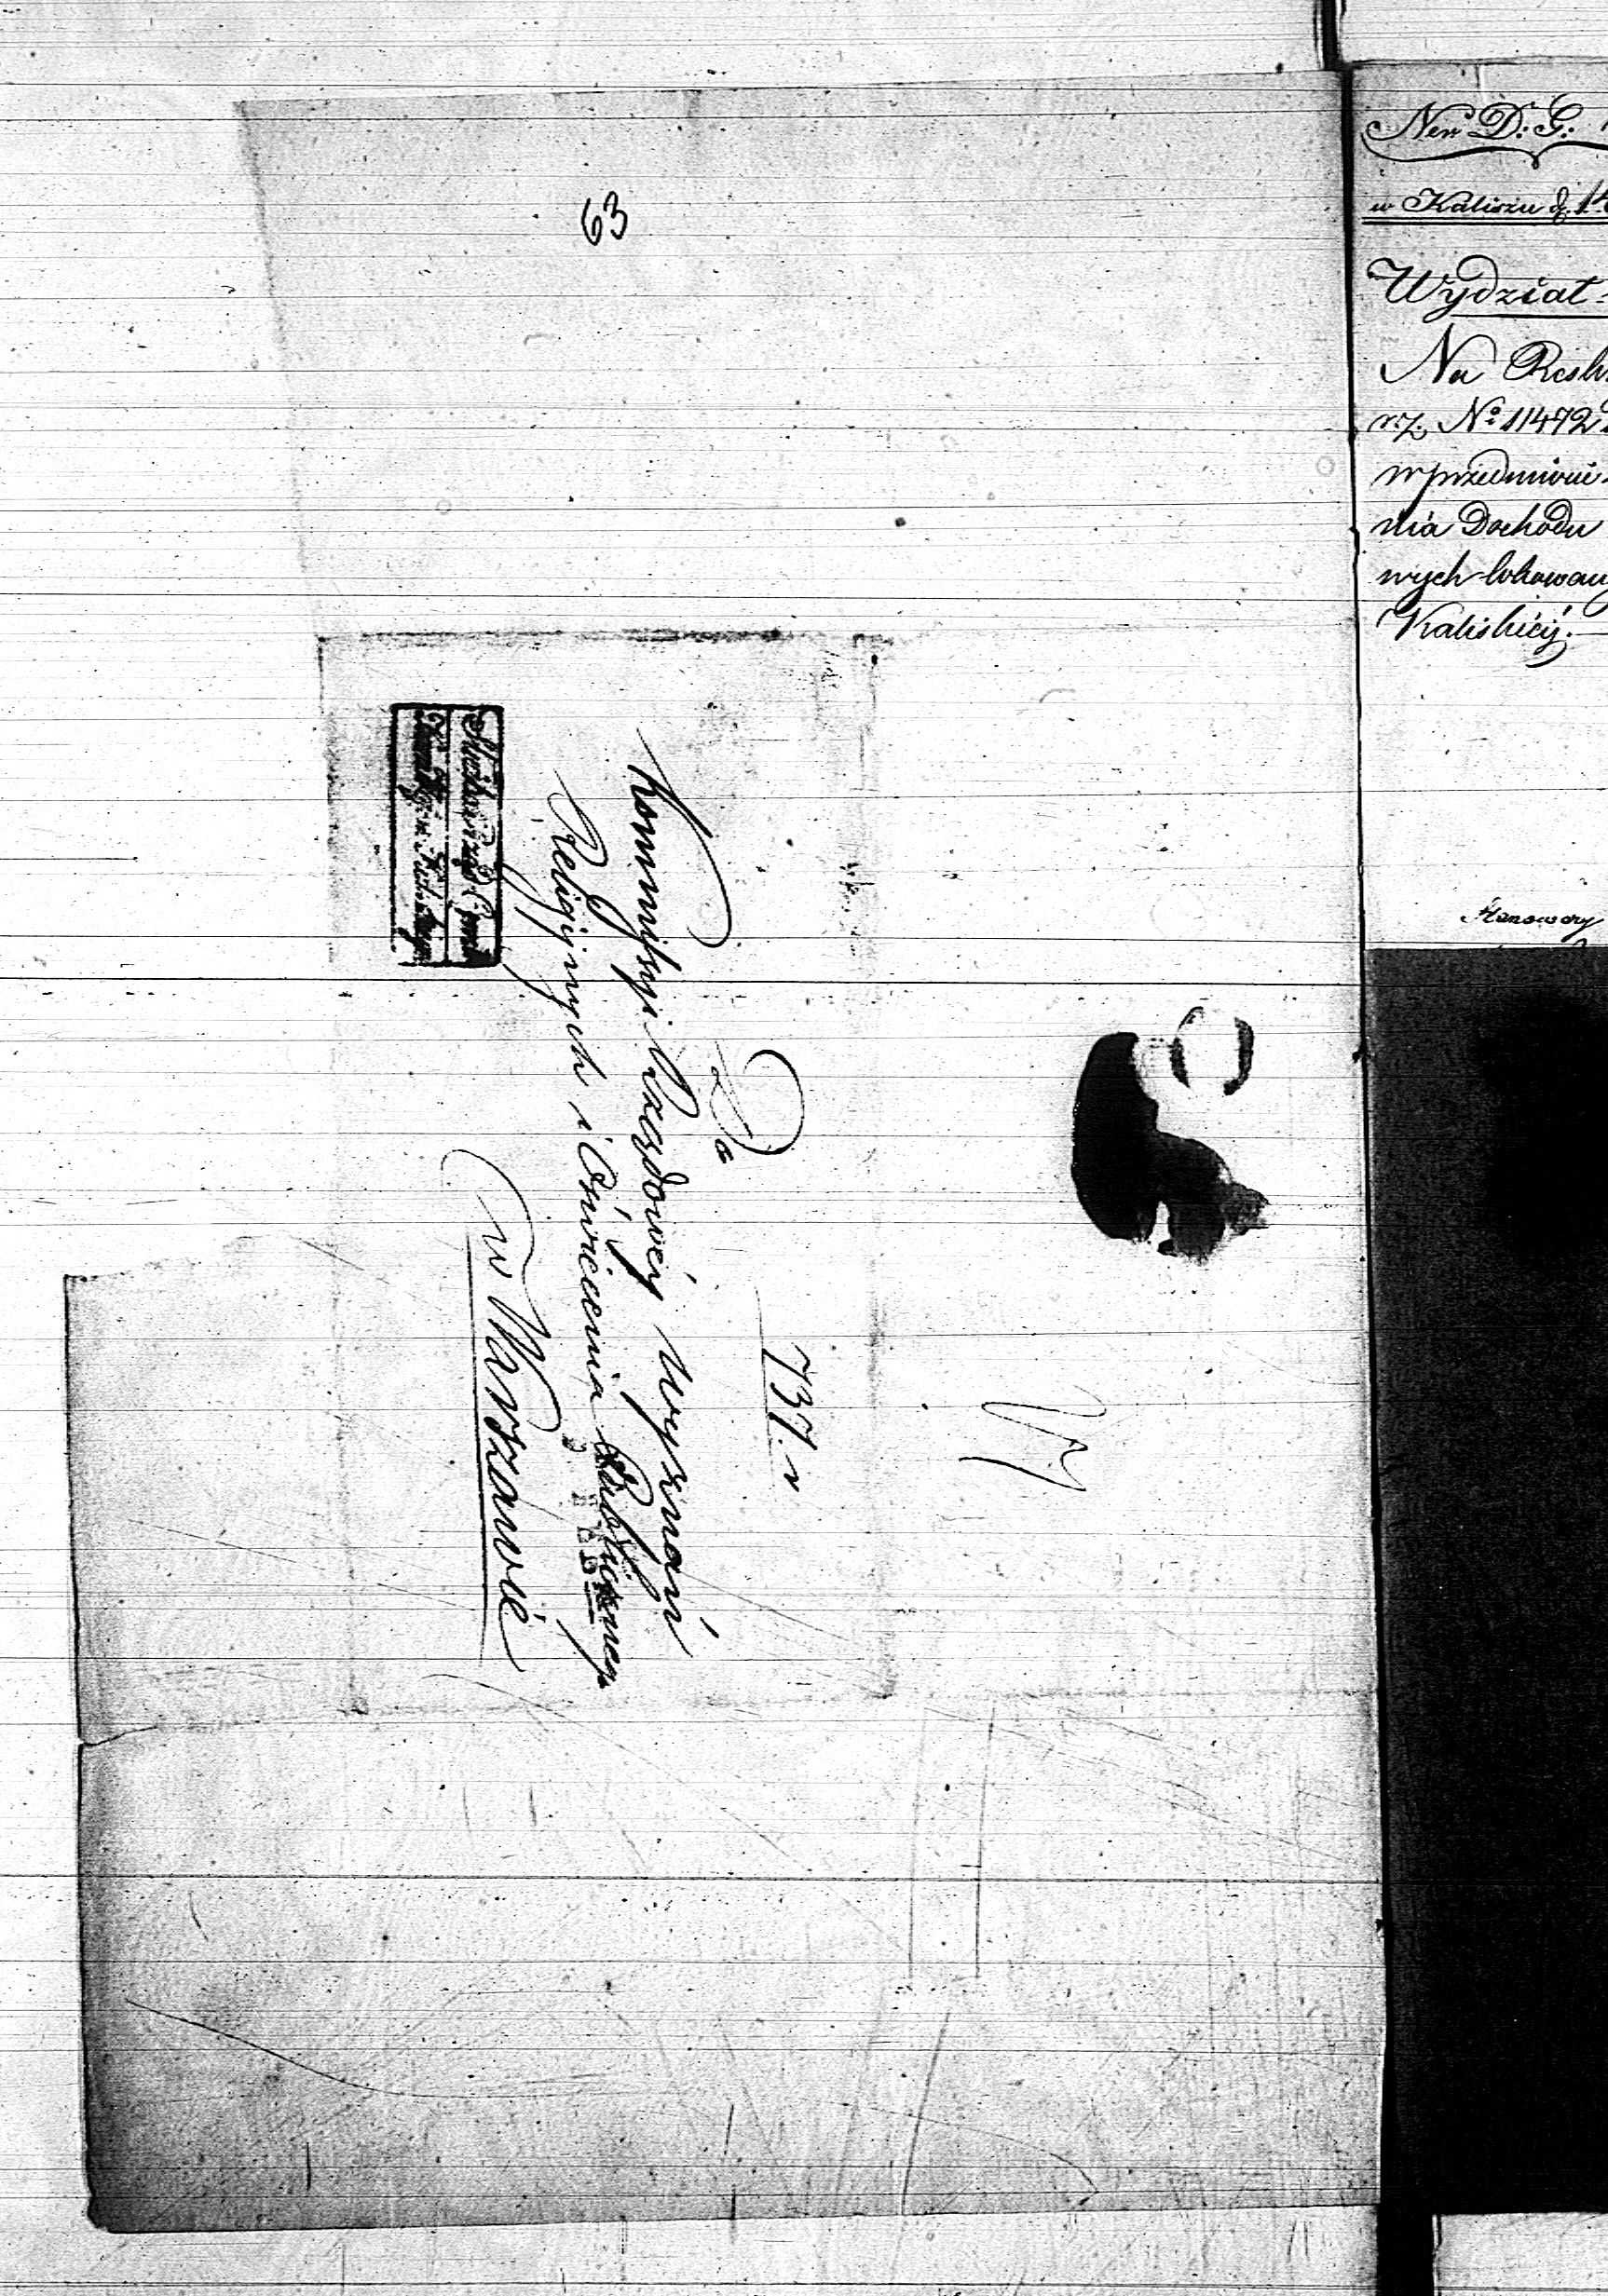 63
737.
Do
Kommissyi Rządowéy Wyznań
Religijnych i Oświecenia Publicznego
w Warszawie
Nro D: G:
w Kaliszu d. 14
Wydział
Na Resk
rz. No 11472
w przedmiocie
nia Dochodu
wych lokowany
Kaliskiéy.